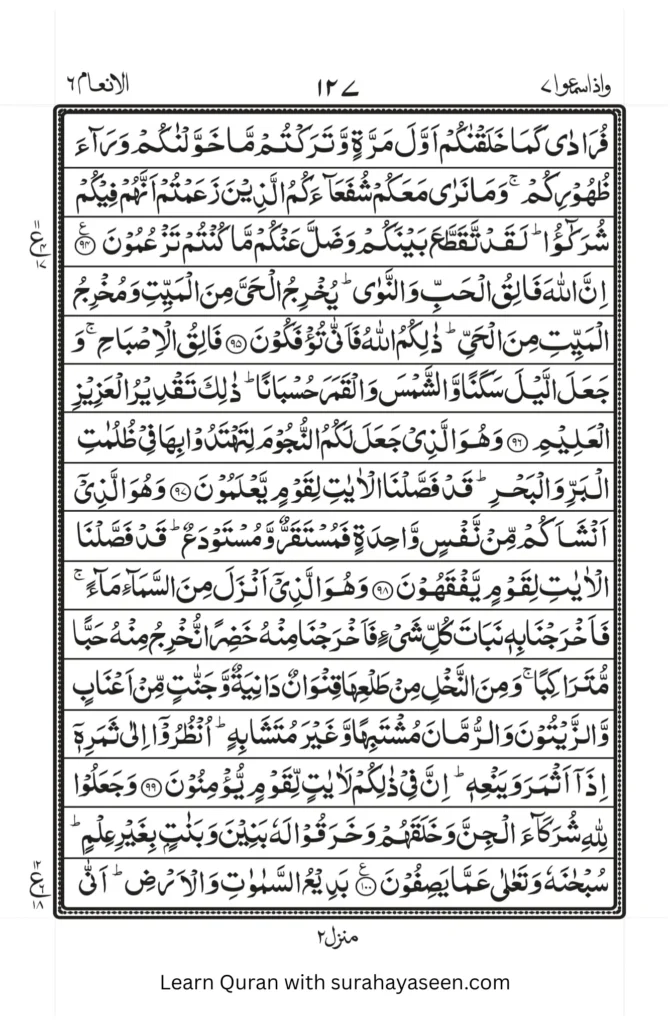 واذاسمعوا۷ ۱۲۷ الانعام ۶
فُرَادٰى كَمَا خَلَقْنٰكُمْ اَوَّلَ مَرَّةٍ وَّتَرَكْتُمْ مَّا خَوَّلْنٰكُمْ وَرَآءَ
ظُهُوْرِكُمْ ۚ وَمَا نَرٰى مَعَكُمْ شُفَعَآءَكُمُ الَّذِيْنَ زَعَمْتُمْ اَنَّهُمْ فِيْكُمْ
شُرَكٰٓؤُا ؕ لَقَدْ تَّقَطَّعَ بَيْنَكُمْ وَضَلَّ عَنْكُمْ مَّا كُنْتُمْ تَزْعُمُوْنَ ۝۹۴ ع
۱۱ ع ۴ ۱۷
اِنَّ اللّٰهَ فَالِقُ الْحَبِّ وَالنَّوٰى ؕ يُخْرِجُ الْحَىَّ مِنَ الْمَيِّتِ وَمُخْرِجُ
الْمَيِّتِ مِنَ الْحَىِّ ؕ ذٰلِكُمُ اللّٰهُ فَاَنّٰى تُؤْفَكُوْنَ ۝۹۵ فَالِقُ الْاِصْبَاحِ ۚ وَ
جَعَلَ الَّيْلَ سَكَنًا وَّالشَّمْسَ وَالْقَمَرَ حُسْبَانًا ؕ ذٰلِكَ تَقْدِيْرُ الْعَزِيْزِ
الْعَلِيْمِ ۝۹۶ وَهُوَ الَّذِىْ جَعَلَ لَكُمُ النُّجُوْمَ لِتَهْتَدُوْا بِهَا فِىْ ظُلُمٰتِ
الْبَرِّ وَالْبَحْرِ ؕ قَدْ فَصَّلْنَا الْاٰيٰتِ لِقَوْمٍ يَّعْلَمُوْنَ ۝۹۷ وَهُوَ الَّذِىْٓ
اَنْشَاَكُمْ مِّنْ نَّفْسٍ وَّاحِدَةٍ فَمُسْتَقَرٌّ وَّمُسْتَوْدَعٌ ؕ قَدْ فَصَّلْنَا
الْاٰيٰتِ لِقَوْمٍ يَّفْقَهُوْنَ ۝۹۸ وَهُوَ الَّذِىْٓ اَنْزَلَ مِنَ السَّمَآءِ مَآءً ۚ
فَاَخْرَجْنَا بِهٖ نَبَاتَ كُلِّ شَىْءٍ فَاَخْرَجْنَا مِنْهُ خَضِرًا نُّخْرِجُ مِنْهُ حَبًّا
مُّتَرَاكِبًا ۚ وَمِنَ النَّخْلِ مِنْ طَلْعِهَا قِنْوَانٌ دَانِيَةٌ وَّجَنّٰتٍ مِّنْ اَعْنَابٍ
وَّالزَّيْتُوْنَ وَالرُّمَّانَ مُشْتَبِهًا وَّغَيْرَ مُتَشَابِهٍ ؕ اُنْظُرُوْٓا اِلٰى ثَمَرِهٖٓ
اِذَآ اَثْمَرَ وَيَنْعِهٖ ؕ اِنَّ فِىْ ذٰلِكُمْ لَاٰيٰتٍ لِّقَوْمٍ يُّؤْمِنُوْنَ ۝۹۹ وَجَعَلُوْا
لِلّٰهِ شُرَكَآءَ الْجِنَّ وَخَلَقَهُمْ وَخَرَقُوْا لَهٗ بَنِيْنَ وَبَنٰتٍۭ بِغَيْرِ عِلْمٍ ؕ
سُبْحٰنَهٗ وَتَعٰلٰى عَمَّا يَصِفُوْنَ ۝۱۰۰ ع بَدِيْعُ السَّمٰوٰتِ وَالْاَرْضِ ؕ اَنّٰى
۱۲ ع ۶ ۱۸
منزل۲
Learn Quran with surahayaseen.com